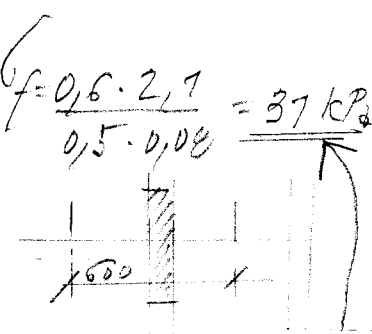 f=0,6·2,1
0,5·0,08
=31 kPa
600